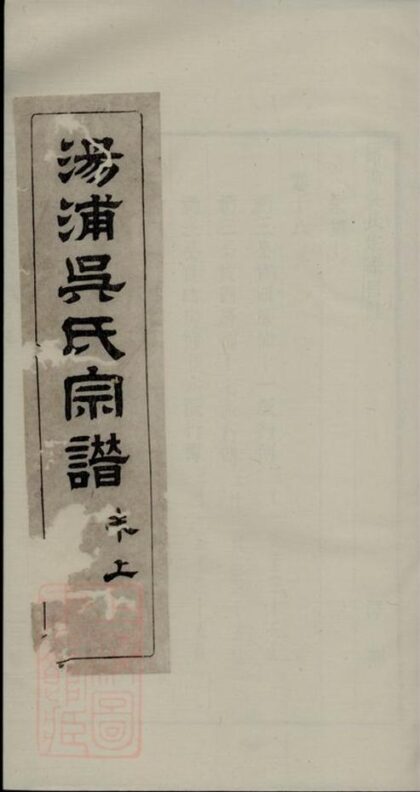 湯浦吳氏宗譜
上